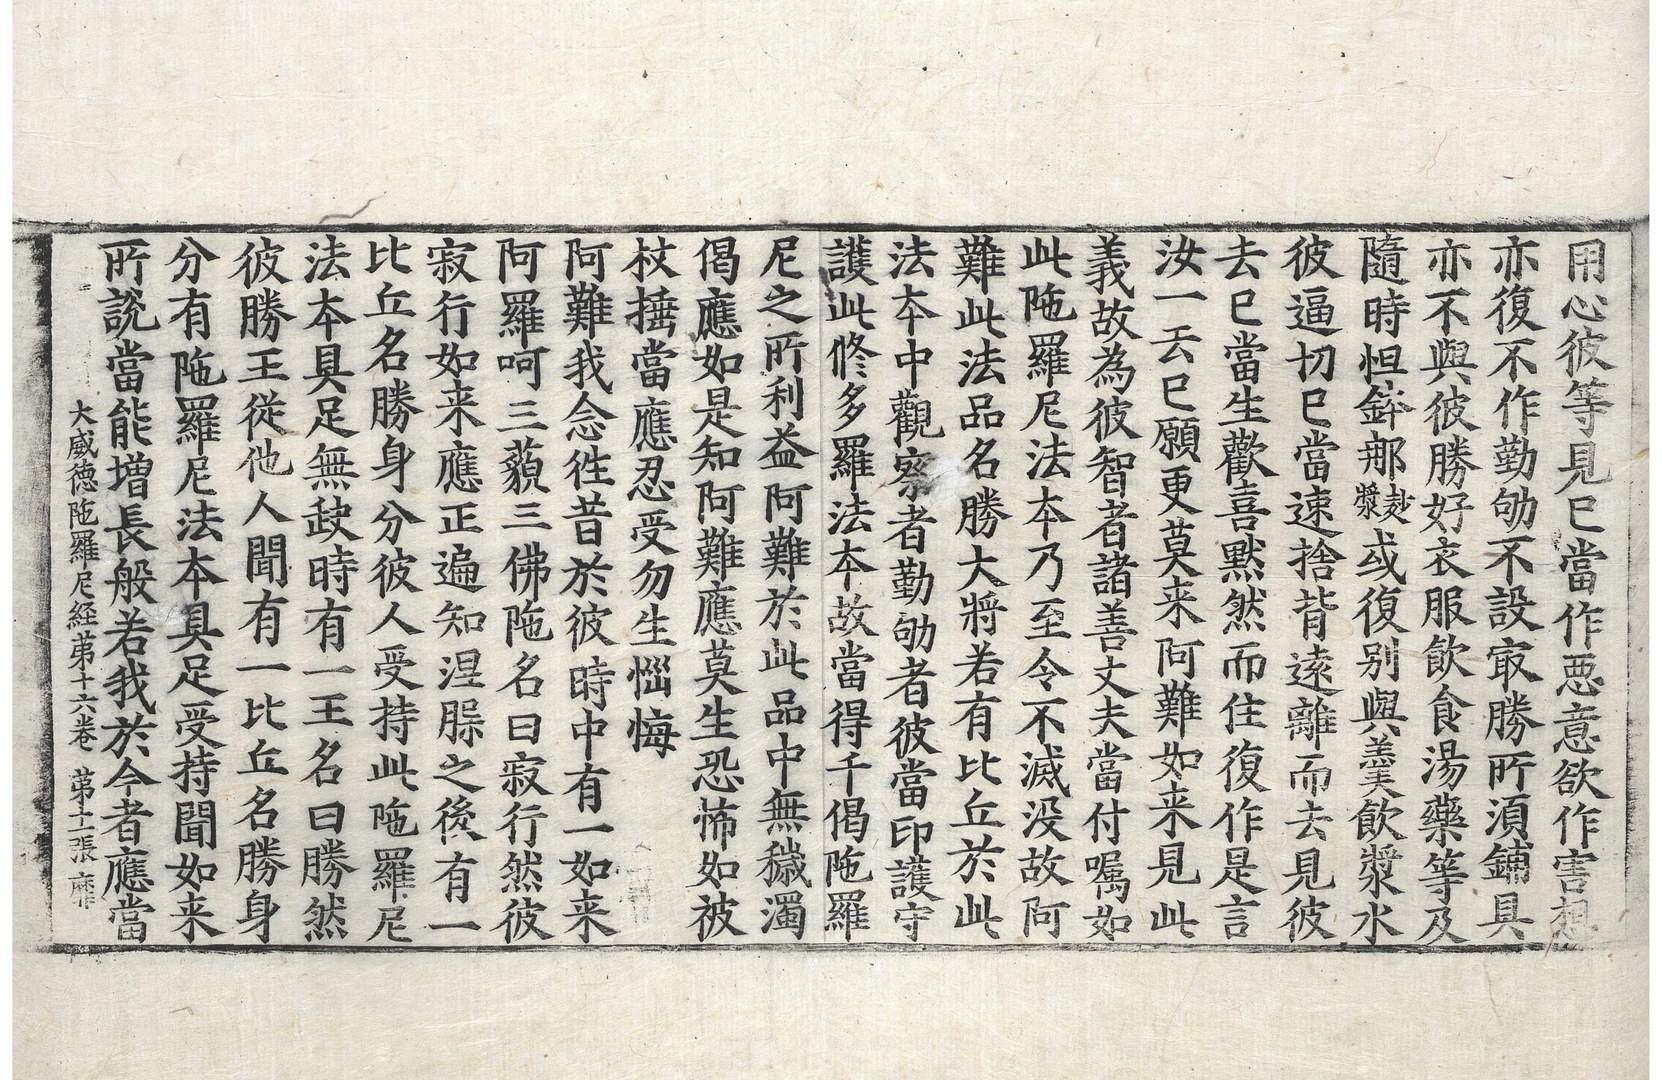 用心彼等見已當作悪意欲作害想
亦復不作勤劬不設㝡勝所湏鋪具
亦不與彼勝好衣服飲食湯藥等及
隨時怛鉢那麨漿或復别與羹飲漿水
彼逼切已當速捨背遠離而去見彼
去已當生歡喜黙然而住復作是言
汝一去已願更莫来阿難如来見此
義故為彼智者諸善丈夫當付囑如
此陁羅尼法本乃至令不滅没故阿
難此法品名勝大將若有比丘於此
法本中觀察者勤劬者彼當印護守
護此修多羅法本故當得千偈陁羅
尼之所利益阿難於此品中無穢濁
偈應如是知阿難應莫生恐怖如被
杖捶當應忍受勿生惱悔
阿難我念徃昔於彼時中有一如来
阿羅呵三藐三佛陁名曰寂行然彼
寂行如来應正遍知涅槃之後有一
比丘名勝身分彼人受持此陁羅尼
法本具足無缺時有一王名曰勝然
彼勝王従他人聞有一比丘名勝身
分有陁羅尼法本具足受持聞如来
所說當能增長般若我於今者應當
大威德陁羅尼経苐十六卷　苐十二張　靡